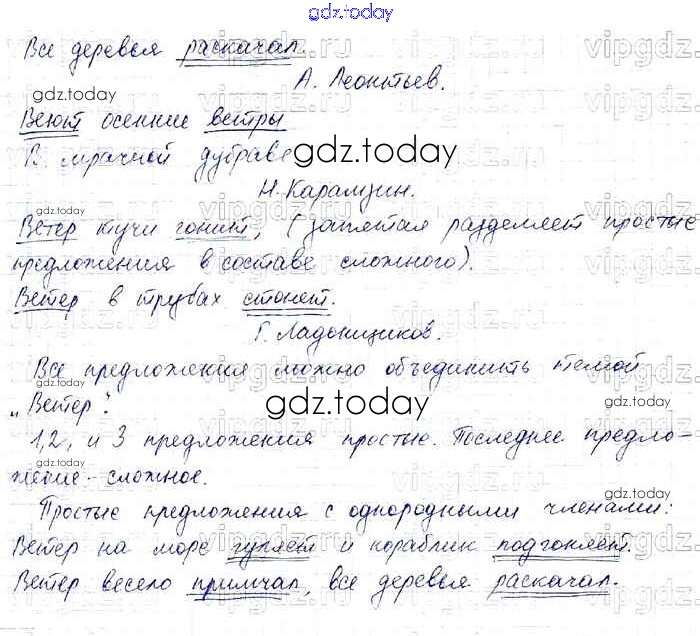 gdz.today
Все деревья раскачал.
А. Леонтьев.
gdz.today
Веют осенние ветры
В мрачной дубраве
gdz.today
Н. Карамзин.
gdz.today
Ветер тучи гонит, (запятая разделяет простые
предложения в составе сложного).
Ветер в трубах стонет.
Г. Ладонщиков.
Все предложения можно объединить темой
gdz.today
„Ветер".
gdz.today
1,2, и 3 предложения простые. Последнее предло-
gdz.today
жение - сложное.
gdz.today
Простые предложения с однородными членами:
Ветер на море гуляет и кораблик подгоняет.
Ветер весело примчал, все деревья раскачал.
vipgdz.ru